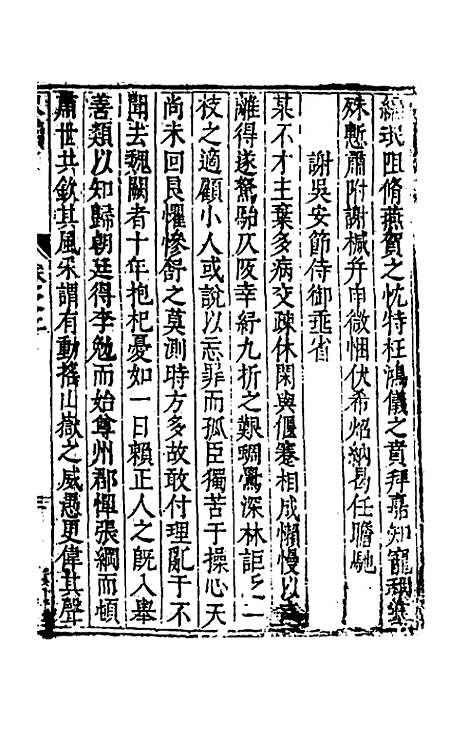 阻脩燕賀之忱特枉鴻儀之賁拜嘉知寵
殊慙肅附謝椷并申微悃伏希炤納曷任瞻馳
謝吳安節侍御垂省
某不才主棄多病交疎休閑與偃蹇相成懶慢以
離得遂駑駘仄阪幸紓九折之艱鷦鷯深林詎乏一
枝之適顧小人或說以忘罪而孤臣獨苦于操心天
尚未回艮懼慘舒之莫測時方多故敢付理亂于不
聞去魏闕者十年抱杞憂如一日賴正人之旣入舉
善類以知歸朝廷得李勉而始尊州郡憚張綱而頓
肅世共欽其風采謂有動搖山嶽之威愚更偉其聲